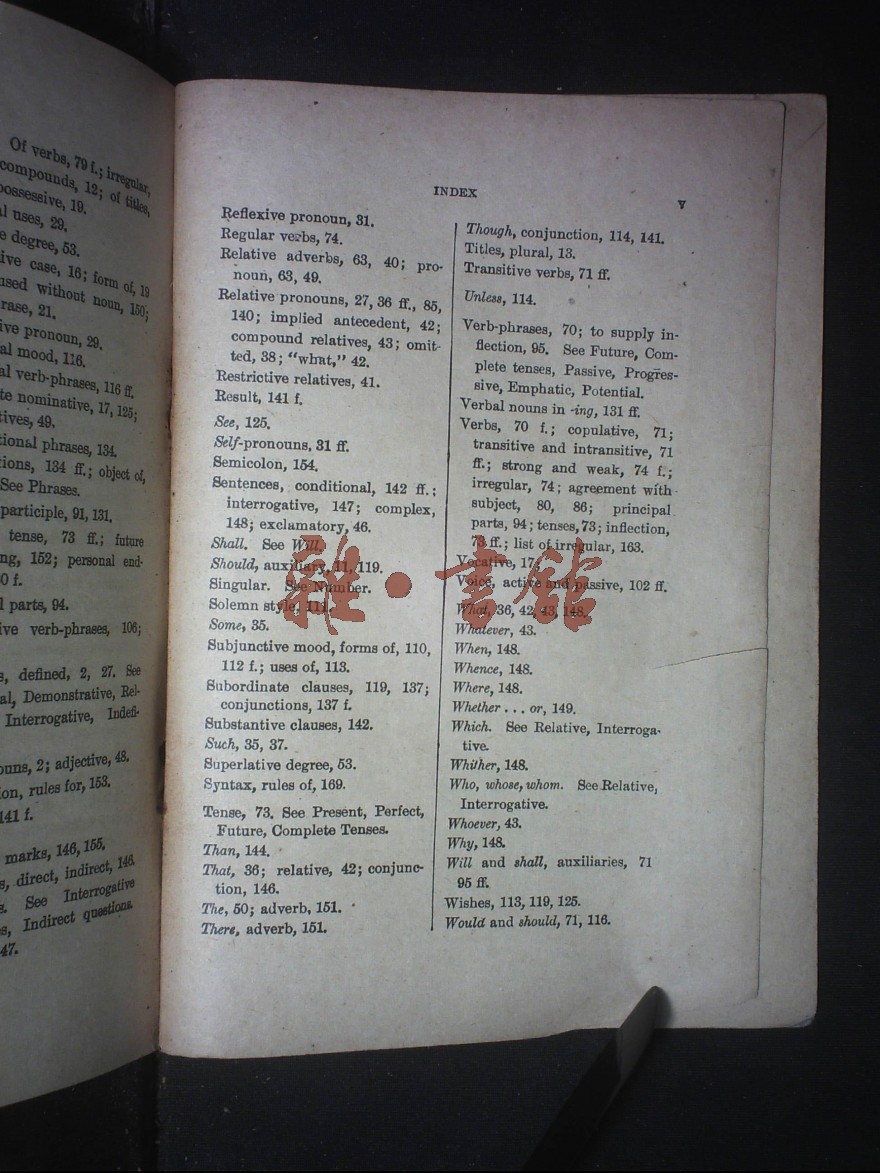 Of verbs, 79 f.; irregular,
compounds, 12; of titles,
possessive, 19.
uses, 29.
degree, 53.
case, 16; form of, 19
used without noun, 150;
21.
pronoun, 29.
mood, 116.
verb-phrases, 116 ff.
nominative, 17, 125;
49.
phrases, 134.
134 ff.; object of,
See Phrases.
participle, 91, 131.
tense, 73 ff.; future
152; personal end-
0 f.
parts, 94.
verb-phrases, 106;
defined, 2, 27. See
Demonstrative, Rel-
Interrogative, Indefi-
2; adjective, 48.
rules for, 153.
141 f.
marks, 146, 155.
direct, indirect, 146.
See Interrogative
Indirect questions.
47.
INDEX
v
Reflexive pronoun, 31.
Regular verbs, 74.
Relative adverbs, 63, 40; pro-
noun, 63, 49.
Relative pronouns, 27, 36 ff., 85,
140; implied antecedent, 42;
compound relatives, 43; omit-
ted, 38; "what," 42.
Restrictive relatives, 41.
Result, 141 f.
See, 125.
Self-pronouns, 31 ff.
Semicolon, 154.
Sentences, conditional, 142 ff.;
interrogative, 147; complex,
148; exclamatory, 46.
Shall. See Will.
Should, auxiliary, 11, 119.
Singular. See Number.
Solemn style, 111.
Some, 35.
Subjunctive mood, forms of, 110,
112 f.; uses of, 113.
Subordinate clauses, 119, 137;
conjunctions, 137 f.
Substantive clauses, 142.
Such, 35, 37.
Superlative degree, 53.
Syntax, rules of, 169.
Tense, 73. See Present, Perfect,
Future, Complete Tenses.
Than, 144.
That, 36; relative, 42; conjunc-
tion, 146.
The, 50; adverb, 151.
There, adverb, 151.
Though, conjunction, 114, 141.
Titles, plural, 13.
Transitive verbs, 71 ff.
Unless, 114.
Verb-phrases, 70; to supply in-
flection, 95. See Future, Com-
plete tenses, Passive, Progres-
sive, Emphatic, Potential.
Verbal nouns in -ing, 131 ff.
Verbs, 70 f.; copulative, 71;
transitive and intransitive, 71
ff.; strong and weak, 74 f.;
irregular, 74; agreement with
subject, 80, 86; principal
parts, 94; tenses, 73; inflection,
73 ff.; list of irregular, 163.
Vocative, 17.
Voice, active and passive, 102 ff.
What, 36, 42, 43, 148.
Whatever, 43.
When, 148.
Whence, 148.
Where, 148.
Whether . . . or, 149.
Which. See Relative, Interroga-
tive.
Whither, 148.
Who, whose, whom. See Relative,
Interrogative.
Whoever, 43.
Why, 148.
Will and shall, auxiliaries, 71
95 ff.
Wishes, 113, 119, 125.
Would and should, 71, 116.